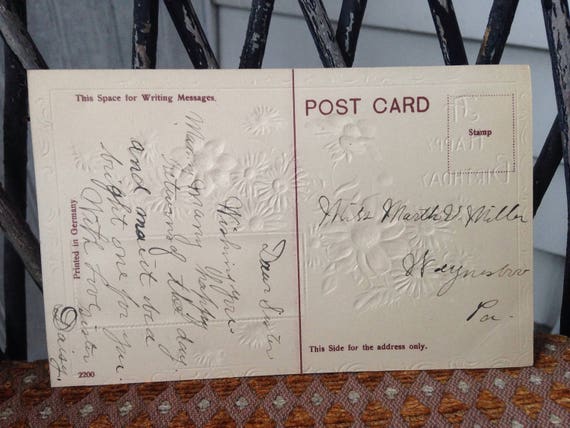 This Space for Writing Messages.
POST CARD
Stamp
Dear Sister
Wishing you
Many Many Happy
Returns of the day.
and may it be a
bright one for you.
With love
Sister
Daisy.
Miss Martha V. Miller
Waynesboro
Pa.
Printed in Germany
2200
This Side for the address only.
A
HAPPY
BIRTHDAY